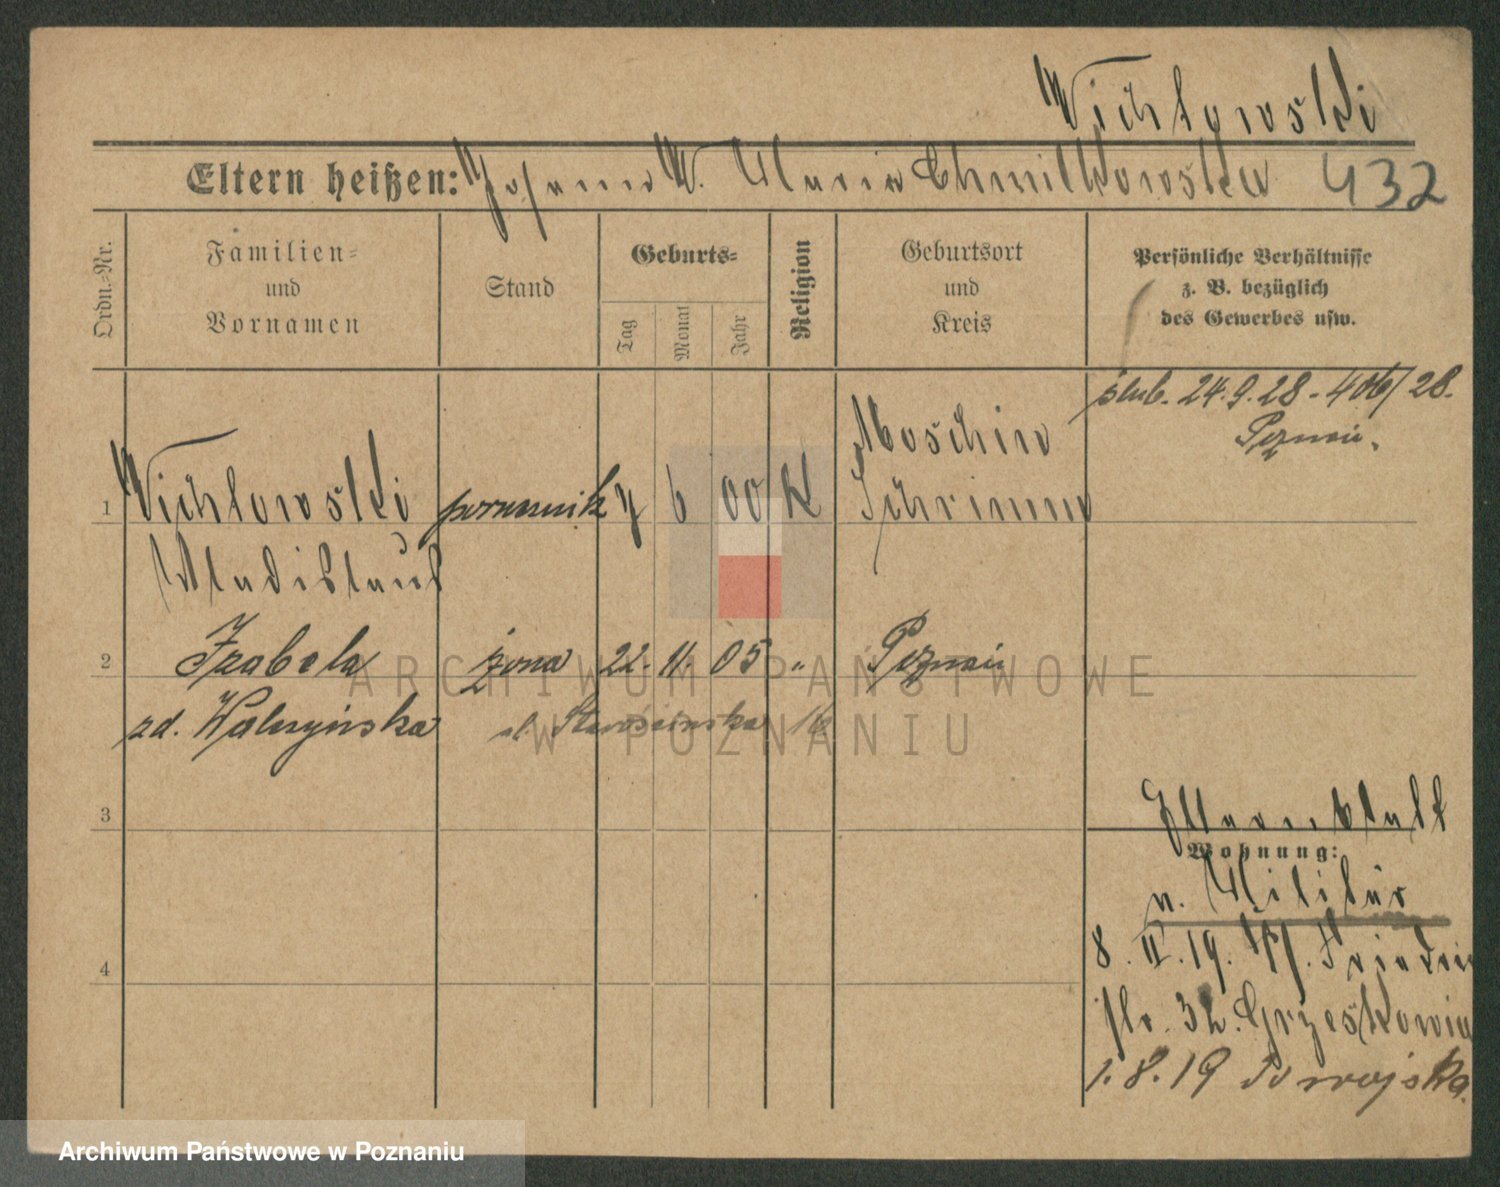 Wichlowski
Eltern heißen: Johann W. Maria Chmilkowska 432
Ordn.=Nr.
Familien=
und
Vornamen
Stand
Geburts=
Tag
Monat
Jahr
Religion
Geburtsort
und
Kreis
Persönliche Verhältnisse
z. B. bezüglich
des Gewerbes usw.
ślub. 24.9.28 - 406/28.
Poznań.
1 Wichlowski porucznik 7 6 00 K Moschin
Schrimm
Wladislaus
2 Izabela żona 22. 11. 05 " Poznań
zd. Walczyńska ul. 16
3
Wohnung:
v. Militär
8. II. 19.
str. 32. Grześkowia
4
1.8.19 Do wojska.
ARCHIWUM PAŃSTWOWE
W POZNANIU
Archiwum Państwowe w Poznaniu